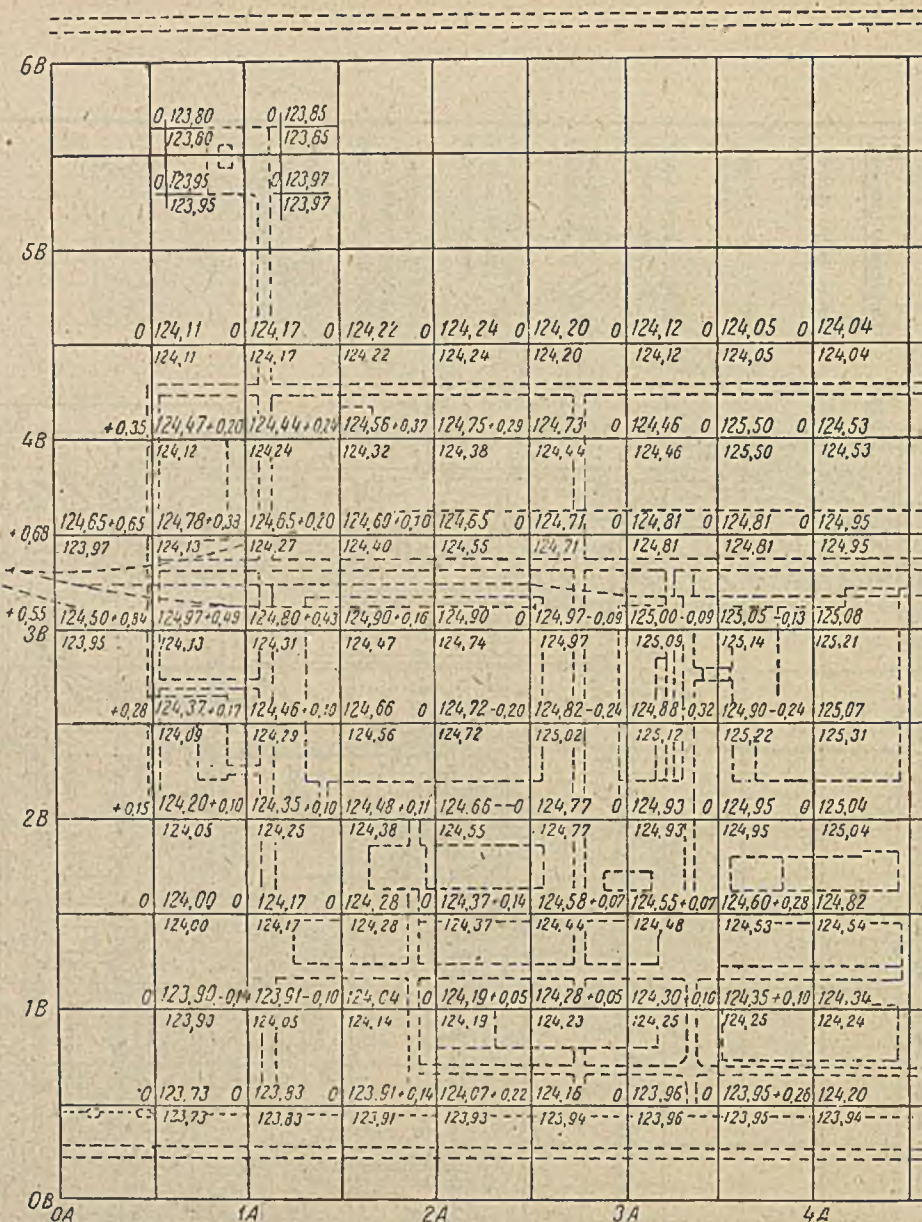 6В
0 123,80 0 123,85
123,80 123,85
0 123,95 0 123,97
123,95 123,97
5В
0 124,11 0 124,17 0 124,22 0 124,24 0 124,20 0 124,12 0 124,05 0 124,04
124,11 124,17 124,22 124,24 124,20 124,12 124,05 124,04
+0,35 124,47+0,20 124,44+0,24 124,56+0,37 124,75+0,29 124,73 0 124,46 0 125,50 0 124,53
4В
124,12 124,24 124,32 124,38 124,44 124,46 125,50 124,53
124,65+0,65 124,78+0,38 124,65+0,20 124,60+0,10 124,65 0 124,71 0 124,81 0 124,81 0 124,95
+0,68
123,97 124,13 124,27 124,40 124,55 124,71 124,81 124,81 124,95
+0,55 124,50+0,84 124,97+0,49 124,80+0,43 124,90+0,16 124,90 0 124,97-0,09 125,00-0,09 125,05-0,13 125,08
3В
123,95 124,13 124,31 124,47 124,74 124,97 125,09 125,14 125,21
+0,28 124,37+0,17 124,46+0,10 124,66 0 124,72-0,20 124,82-0,24 124,88 0,32 124,90-0,24 125,07
124,09 124,29 124,56 124,72 125,02 125,12 125,22 125,31
+0,15 124,20+0,10 124,35+0,10 124,48+0,11 124,66--0 124,77 0 124,93 0 124,95 0 125,04
2В
124,05 124,25 124,38 124,55 124,77 124,93 124,95 125,04
0 124,00 0 124,17 0 124,28 0 124,37+0,14 124,58+0,07 124,55+0,07 124,60+0,28 124,82
124,00 124,17 124,28 124,37 124,44 124,48 124,53 124,54
0 123,90-0,14 123,91-0,10 124,04 0 124,19+0,05 124,28+0,05 124,30+0,10 124,35+0,10 124,34
1В
123,93 124,05 124,14 124,19 124,23 124,25 124,25 124,24
0 123,73 0 123,83 0 123,91+0,14 124,07+0,22 124,16 0 123,96 0 123,95+0,26 124,20
123,73 123,83 123,91 123,93 123,94 123,96 123,95 123,94
0В
0А 1А 2А 3А 4А